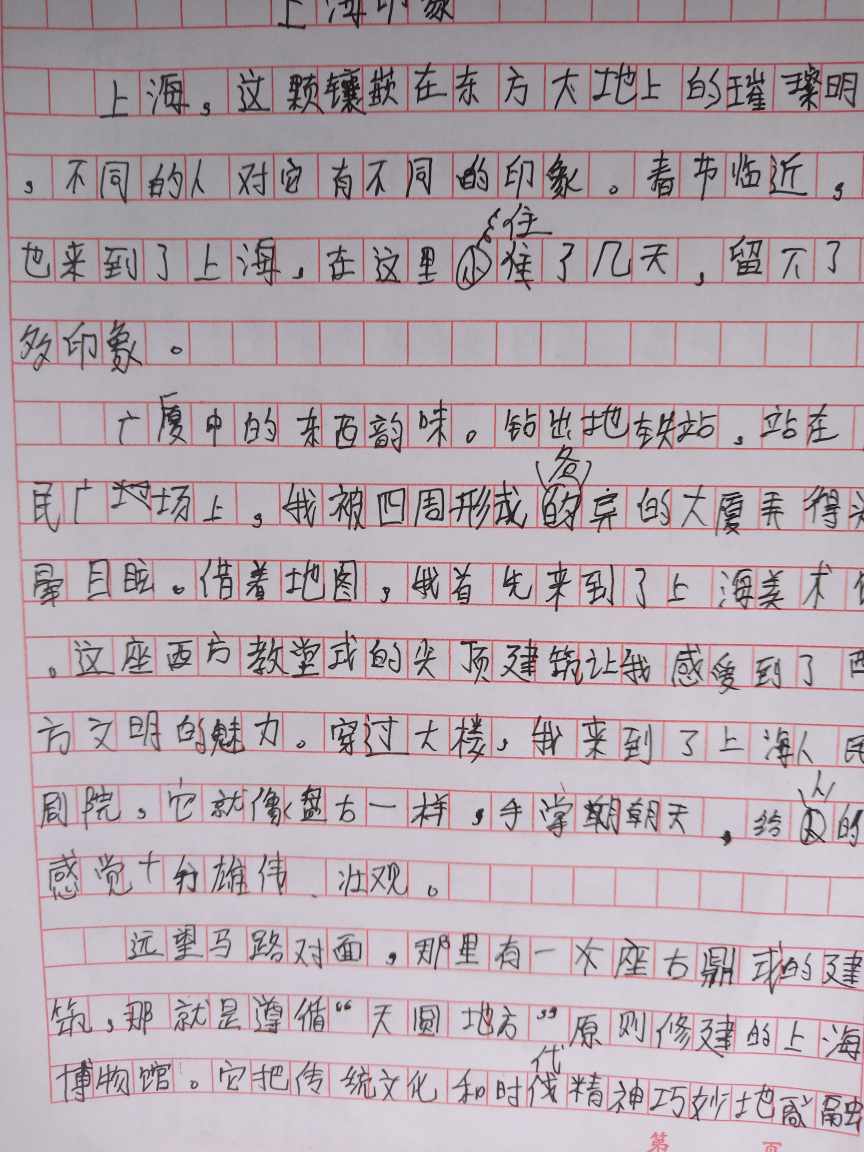 上海印象
上海，这颗镶嵌在东方大地上的璀璨明
，不同的人对它有不同的印象。春节临近，
也来到了上海，在这里住了几天，留下了
多印象。
广厦中的东西韵味。钻出地铁站，站在
民广场上，我被四周形成各异的大厦弄得
晕目眩。借着地图，我首先来到了上海美术
。这座西方教堂式的尖顶建筑让我感受到了西
方文明的魅力。穿过大楼，我来到了上海人民
剧院，它就像盘古一样，手掌朝朝天，给人的
感觉十分雄伟、壮观。
远望马路对面，那里有一座古鼎式的建
筑，那就是遵循“天圆地方”原则修建的上海
博物馆。它把传统文化和时代精神巧妙地融
第 页